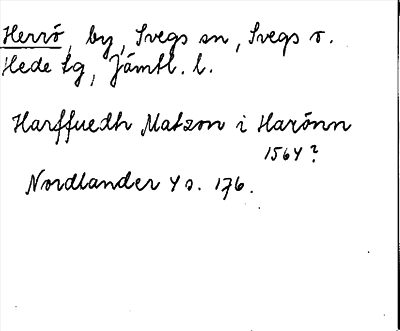 Herrö, by, Svegs sn, Svegs o.
Hede tg, Jämtl. l.
Harffuedh Matzon i Harönn
1564?
Nordlander 4 s. 176.